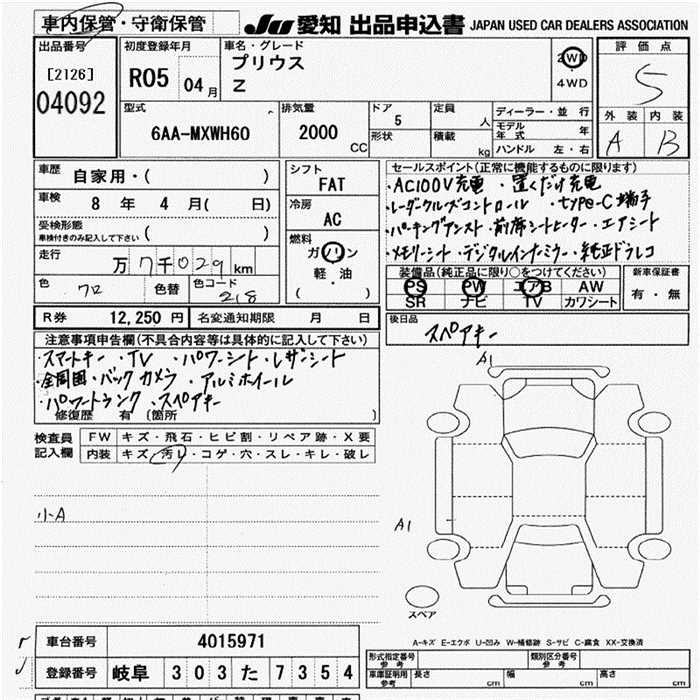 車内保管・守衛保管
JU 愛知 出品申込書 JAPAN USED CAR DEALERS ASSOCIATION
出品番号
[2126]
04092
初度登録年月
R05 04月
車名・グレード
プリウス
Z
2WD
・
4WD
評価点
5
外装 内装
A B
型式
6AA-MXWH60
排気量
2000
CC
ドア
5
形状
定員
人
積載
kg
ディーラー・並行
モデル年式 年
ハンドル 左・右
車歴
自家用・( )
車検
8年 4月( 日)
受検形態
車検付きのみ記入して下さい ( )
走行
万7千029km
色
クロ
色替
色コード
218
シフト
FAT
冷房
AC
燃料
ガソリン
軽・油
( )
セールスポイント(正常に機能するものに限ります)
・AC100V充電 ・置くだけ充電
・レーダークルーズコントロール ・type-C端子
・パーキングアシスト・前席シートヒーター・エアシート
・メモリーシート・デジタルインナーミラー・純正ドラレコ
装備品(純正品に限り○をつけてください)
PS PW エアB AW
SR ナビ TV カワシート
新車保証書
有・無
後日品
スペアキー
R券 12,250円 名変通知期限 月 日
注意事項申告欄(不具合内容等は具体的に記入して下さい)
・スマートキー・TV ・パワーシート・レザーシート
・全周囲・バックカメラ・アルミホイール
・パワートランク・スペアキー
修復歴 有 (箇所 )
検査員記入欄
FW キズ・飛石・ヒビ割・リペア跡・X要
内装 キズ・汚レ・コゲ・穴・スレ・キレ・破レ
小A
A1
A1
スペア
A-キズ E-エクボ U-凹み W-補修跡 S-サビ C-腐食 XX-交換済
車台番号 4015971
登録番号 岐阜 303 た 7354
形式指定番号 参考
類別区分番号 参考
車庫証明用 参考 長さ cm 幅 cm 高さ cm